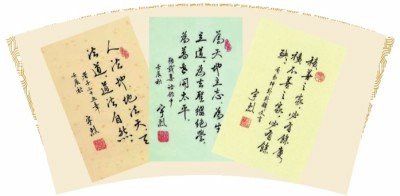 積善之家必有餘慶
積不善之家必有餘
殃
宇烈
為天地立志為生民
立道為去聖繼絕學
為萬世開太平
壬辰秋 宇烈
人法地地法天天
法道道法自然
壬辰秋 宇烈